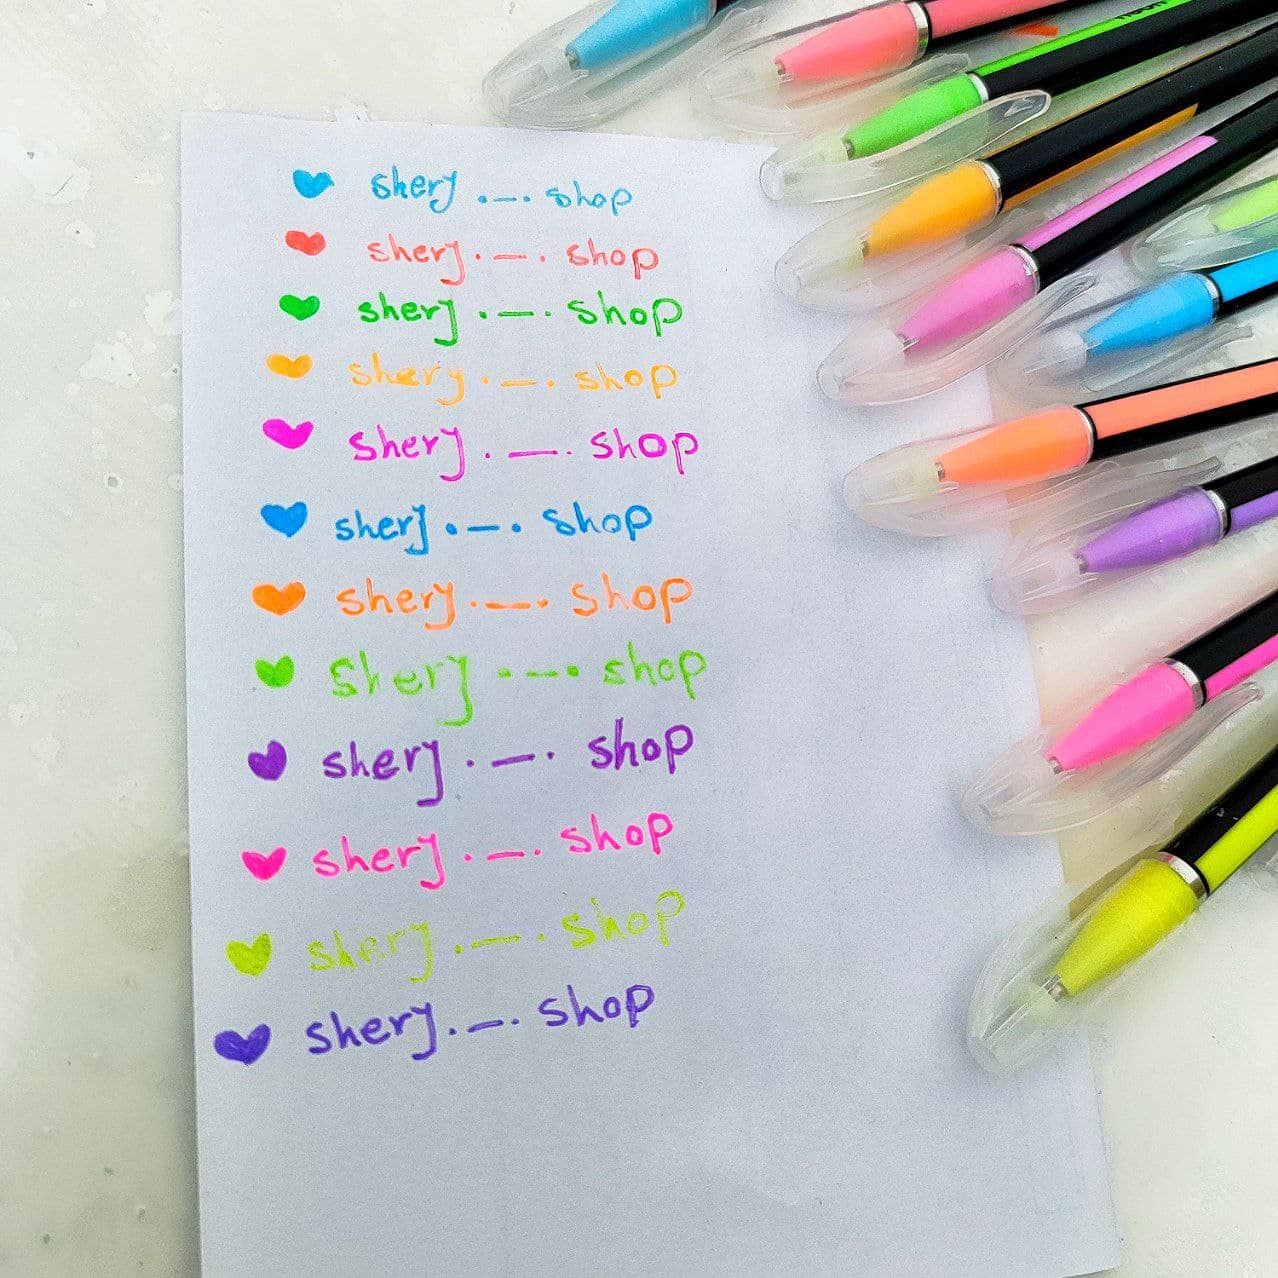 shery ._. shop
shery ._. shop
shery ._. shop
shery ._. shop
shery ._. shop
shery ._. shop
shery ._. shop
shery ._. shop
shery ._. shop
shery ._. shop
shery ._. shop
shery ._. shop